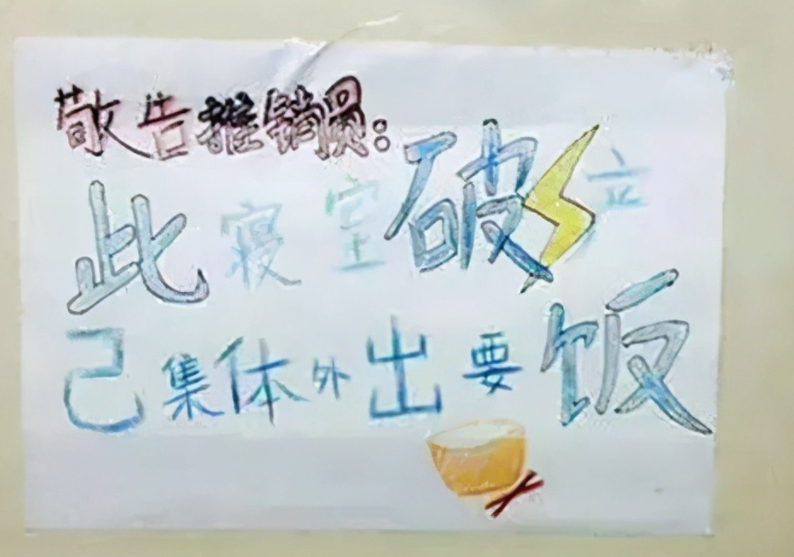 敬告推销员:
此寝室破立
己集体外出要饭